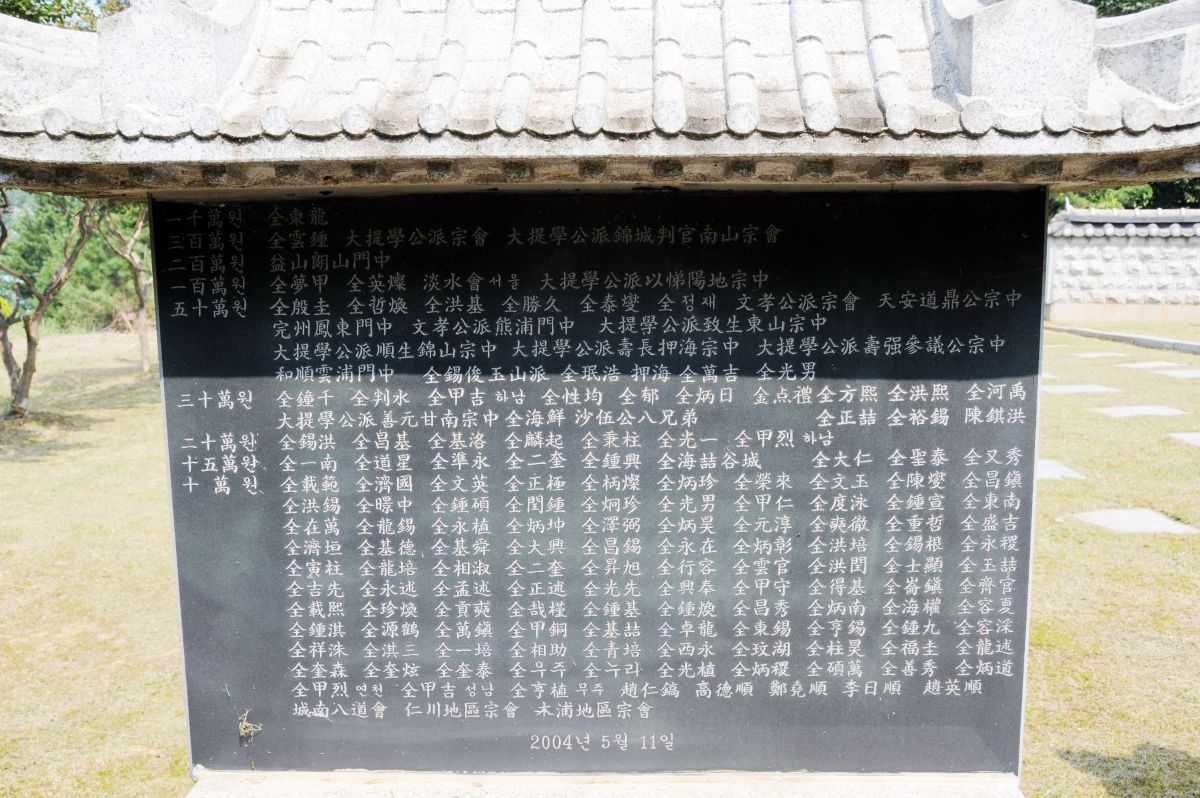 一千萬원 全東龍
三百萬원 全雲鍾 大提學公派宗會 大提學公派錦城判官南山宗會
二百萬원 益山朗山門中
一百萬원 全夢甲 全英燦 淡水會서울 大提學公派以悌陽地宗中
五十萬원 全殷圭 全哲煥 全洪基 全勝久 全泰燮 全정재 文孝公派宗會 天安道鼎公宗中
完州鳳東門中 文孝公派熊浦門中 大提學公派致生東山宗中
大提學公派順生錦山宗中 大提學公派壽長押海宗中 大提學公派壽强參議公宗中
和順雲浦門中 全錫俊玉山派 全珉浩押海 全萬吉 全光男
三十萬원 全鐘千 全判水 全甲吉하남 全性均 全郁 全炳日 金点禮 全方熙 全洪熙 全河禹
大提學公派善元甘南宗中 全海鮮 沙伍公八兄弟 全正喆 全裕錫 陳錤洪
二十萬원 全錫洪 全昌基 全基洛 全麟起 全秉柱 全光一 全甲烈하남
十五萬원 全一南 全道星 全準永 全二奎 全鍾興 全海喆谷城 全大仁 全聖泰 全又秀
十萬원 全載範 全濟國 全文英 全正極 全柄燦 全炳珍 全榮來 全文玉 全陳燮 全昌鎭
全洪錫 全暻中 全鍾碩 全閏鍾 全炯珍 全光男 全甲仁 全度泳 全鍾宣 全東南
全在萬 全龍錫 全永植 全炳坤 全澤弼 全炳昊 全元淳 全奭徹 全重哲 全盛吉
全濟垣 全基德 全基舜 全大興 全昌錫 全永在 全炳彰 全洪培 全錫根 全永稷
全寅柱 全龍培 全相淑 全二奎 全昇旭 全行容 全雲官 全洪閏 全士顯 全玉喆
全吉先 全永述 全孟述 全正述 全光先 全興奉 全甲守 全得基 全崙鎭 全齊官
全載熙 全珍煥 全貢奭 全哉槿 全鍾基 全鍾煥 全昌秀 全炳南 全海權 全容夏
全鍾淇 全源鶴 全萬鎭 全甲銅 全基喆 全卓龍 全東錫 全亨錫 全鍾九 全容深
全祥洙 全淇三 全一培 全相助 全青培 全西永 全玟湖 全柱昊 全福圭 全龍述
全奎森 全奎炫 全奎泰 全우주 全누라 全光植 全炳稷 全碩萬 全善秀 全炳道
全甲烈연천 全甲吉성남 全亨植무주 趙仁鎬 高德順 鄭堯順 李日順 趙英順
城南八道會 仁川地區宗會 木浦地區宗會
2004년 5월 11일